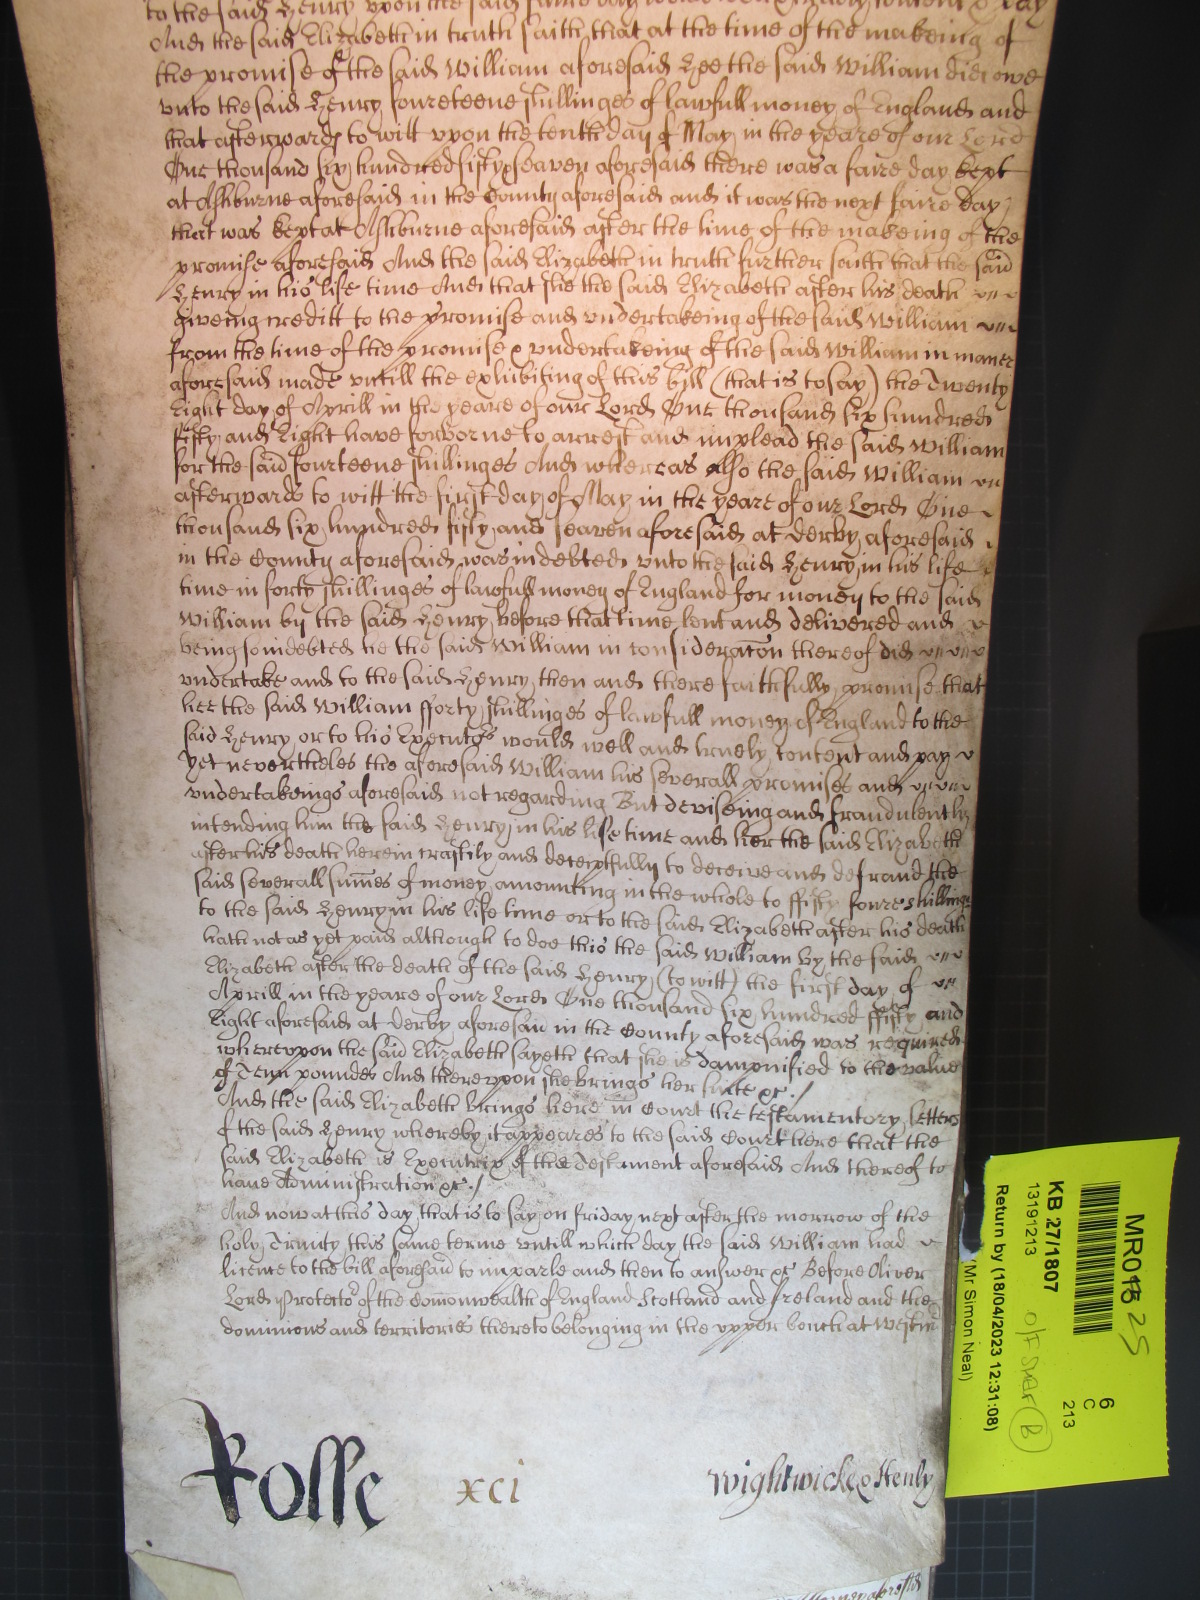 to the said Henry upon the said faire day would well & truely content & pay
And the said Elizabeth in truth saith that at the time of the makeing of
the promise of the said William aforesaid hee the said William did owe
unto the said Henry foureteene shillinges of lawfull money of England and
that afterwards to witt upon the tenth day of May in the yeare of our Lord
One thousand six hundred fifty & seaven aforesaid there was a faire day kept
at Ashburne aforesaid in the County aforesaid and it was the next faire day
that was kept at Ashburne aforesaid after the time of the makeing of the
promise aforesaid And the said Elizabeth in truth further saith that the said
Henry in his life time And that she the said Elizabeth after his death
giveing creditt to the promise and undertakeing of the said William
from the time of the promise & undertakeing of the said William in maner
aforesaid made untill the exhibiting of this bill (that is to say) the Twenty
Eight day of Aprill in the yeare of our Lord One thousand six hundred
fifty and Eight have forborne to arrest and implead the said William
for the said fourteene shillinges And whereas also the said William
afterwards to witt the first day of May in the yeare of our Lord One
thousand six hundred fifty and seaven aforesaid at Derby aforesaid
in the County aforesaid was indebted unto the said Henry in his life
time in forty shillinges of lawfull money of England for money to the said
William by the said Henry before that time lent and delivered and
being so indebted he the said William in consideracon thereof did
undertake and to the said Henry then and there faithfully promise that
hee the said William fforty shillinges of lawfull money of England to the
said Henry or to his Executors would well and truely content and pay
Yet nevertheles the aforesaid William his severall promises and
undertakeings aforesaid not regarding But deviseing and fraudulently
intending him the said Henry in his life time and her the said Elizabeth
after his death herein craftily and deceiptfully to deceive and defraud the
said severall sumes of money amounting in the whole to ffifty foure shillings
to the said Henry in his life time or to the said Elizabeth after his death
hath not as yet paid although to doe this the said William by the said
Elizabeth after the death of the said Henry (to witt) the first day of
Aprill in the yeare of our Lord One thousand six hundred ffifty and
Eight aforesaid at Derby aforesaid in the County aforesaid was required
whereupon the said Elizabeth sayeth that she is dampnified to the value
of Tenn poundes And thereupon she brings her suite &c
And the said Elizabeth brings here in Court the testamentory letters
of the said Henry whereby it appeares to the said Court here that the
said Elizabeth is Executrix of the Testament aforesaid And thereof to
have Administration &c
And now at this day that is to say on friday next after the morrow of the
holy Trinity this same terme untill which day the said William had
licence to the bill aforesaid to imparle and then to answer &c Before Oliver
Lord Protector of the Comonwealth of England Scotland and Ireland and the
dominions and territories thereto belonging in the upper bench at Westm
Rolle xci Wightwicke & Henly
MR018 25
6
C
213
KB 27/1807
13191213
B
Return by (18/04/2023 12:31:08)
(Mr Simon Neal)